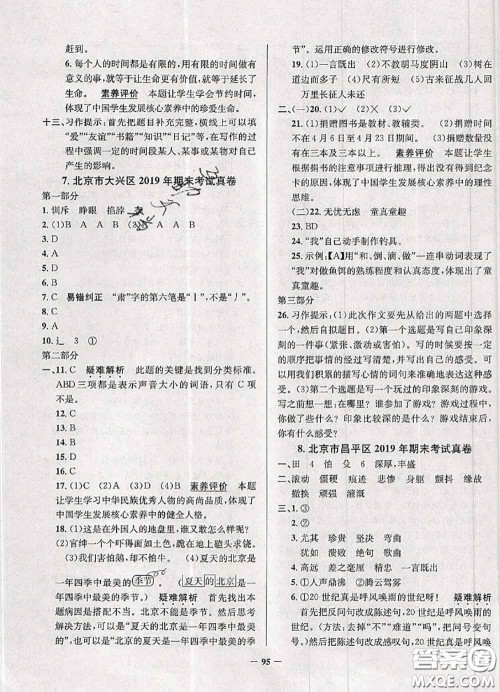 赶到。
6. 每个人的时间都是有限的,用有限的时间做有
意义的事,就等于让生命更有价值,就等于延长
了生命。 素养评价 本题让学生学会节约时间,
体现了中国学生发展核心素养中的珍爱生命。
十三、习作提示:首先把题目补充完整,横线上可以填
“爱”“友谊”“书籍”“知识”“日记”等,在写作的过
程中强调一定时间段某人、某事或某物对自己
产生的影响。
7. 北京市大兴区 2019 年期末考试真卷
第一部分
1. 训斥 睁眼 掐脖
2. (1)B A A B (2)C A B
3. D
4. D
5. B
6. A
7. D
8. D
9. C 易错纠正 “肃”字的第六笔是“丨”,不是“丿”。
10. 辶 3 ①
第二部分
一、11. C 疑难解析 此题的关键是找到分类标准。
ABD 三项都是表示声音大小的词语,只有 C 项
不是。
12. C
13. B
14. D
15. C
16. D
17. (1)C (2)A (3)B (4)D 素养评价 本题
让学生学习中华民族优秀人物的高尚品质,体现了
中国学生发展核心素养中的健全人格。
18. (1)这些在外国人的地盘里,谁又敢怎么样呢?
(2)官绅一个个吓得面如土色。
(3)我们害怕鹅,却不怕牛。(4)夏天的北京是
一年四季中最美的季节。(夏天的北京是一
年四季中最美的季节。) 疑难解析 首先找出本
句话的毛病,北京不是季节,前后矛盾。然后思考
解决方法,可以是“夏天是北京一年四季中最美的
季节”,也可以是“北京的夏天是一年四季中最美的季
节”。运用正确的修改符号进行修改。
19. (1)一言既出 (2)不教胡马度阴山 (3)树在
道边而多子 (4)尺有所短 (5)古来征战几人回
万里长征人未还
二、(一)20. (1)✓ (2)✓ (3)✕ (4)✕
21. (1)捐赠图书是教材、教辅用书。(2)捐赠时间
不在 4 月 6 日至 4 月 23 日期间。(3)捐赠数量
在三本和三本以上。 素养评价 本题让学生
根据捐书的注意事项进行推理,得出没有得到纪念
卡的原因,体现了中国学生发展核心素养中的理性
思维。
(二)22. 无忧无虑 童真童趣
23. BD
24. “我”自己动手制作钓具。
25. 示例:【A】用“和、倒、滴、做”一连串动词表现了
“我”对做鱼饵的熟练程度和认真态度,体现了
“我”的童真童趣。
第三部分
26. 习作提示:(1)此次作文要先从给出的两题中选择
一个,然后自拟题目。(2)第一个选题是写自己印象
深刻的一件事(紧张、激动或害怕)。写作时要按照
一定的顺序把事情的经过写清楚,并表达自己的感受。
可以用积累的描写心情的词语来体现自己的感受。
(3)第二个选题是写一次印象深刻的游戏。游戏之前
写之前想一想:你做了什么准备?游戏中,你做了
什么? 印象比较深的是什么? 游戏结束后,
你想到了什么?
8. 北京市昌平区 2019 年期末考试真卷
一、田 4 怕 殳 6 深厚,丰盛
二、滚动 僵硬 痕迹 悲惨 宽敞 缘故
撤换 顽强 谨慎
三、1. ① ③
2. ② ③
3. 尤其 珍贵 坚决 弯曲
犹如 溃败 绝句 歌曲
4. 高远 差之毫厘 精打 一言既出
5. ①人声鼎沸 ②腾云驾雾
6. ①20 世纪是呼风唤雨的世纪。
②20 世纪真是呼风唤雨的世纪呀! 疑难解析
首先把反问句改成陈述句:20 世纪是呼风唤雨的
世纪。把反问词“不”和“吗”“难道”去掉,问号改成
句号。然后把陈述句改成感叹句:20 世纪真是呼
— 95 —
答案圈
MXQE.COM